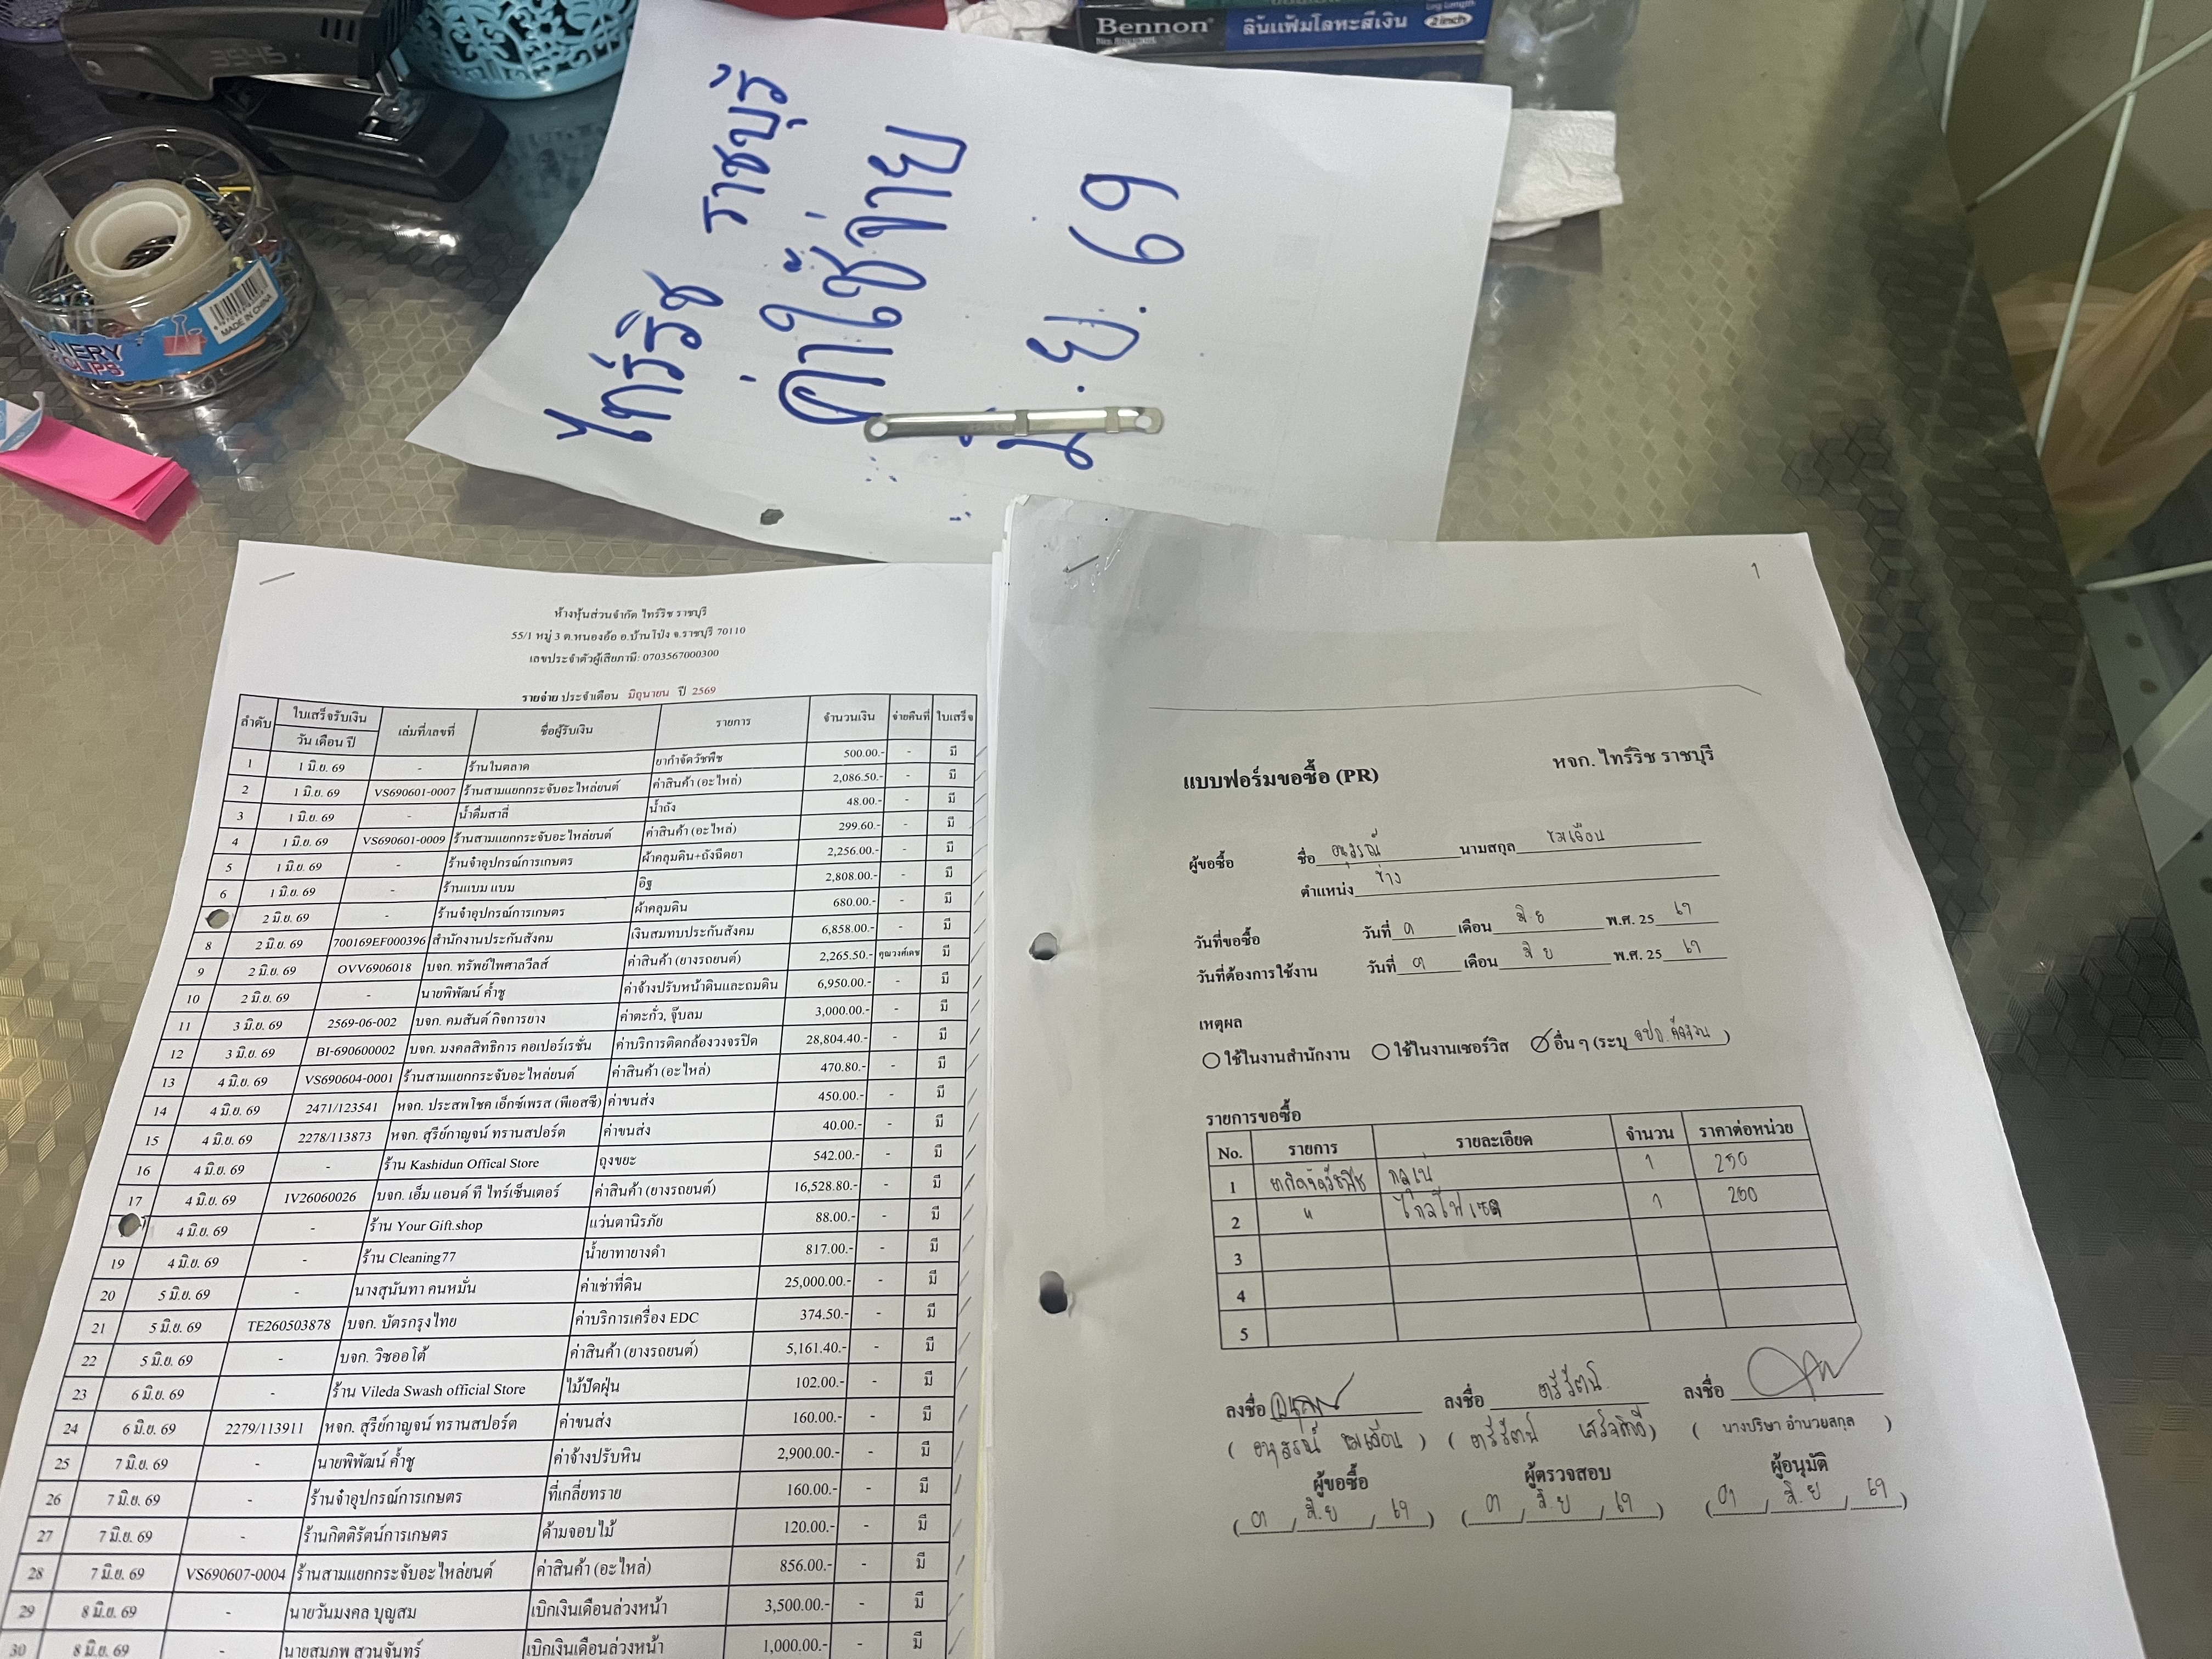 3545
Bennon
ลิ้นแฟ้มโลหะสีเงิน
2 inch
MADE IN CHINA
CLIPS
ไทร์ริช ราชบุรี
ค่าใช้จ่าย
มิ.ย. 69
ห้างหุ้นส่วนจำกัด ไทร์ริช ราชบุรี
55/1 หมู่ 3 ต.หนองอ้อ อ.บ้านโป่ง จ.ราชบุรี 70110
เลขประจำตัวผู้เสียภาษี: 0703567000300
รายจ่าย ประจำเดือน มิถุนายน ปี 2569
ลำดับ ใบเสร็จรับเงิน วัน เดือน ปี เล่มที่/เลขที่ ชื่อผู้รับเงิน รายการ จำนวนเงิน จ่ายคืนที่ ใบเสร็จ
1 1 มิ.ย. 69 - ร้านในตลาด ยากำจัดวัชพืช 500.00.- - มี
2 1 มิ.ย. 69 VS690601-0007 ร้านสามแยกกระจับอะไหล่ยนต์ ค่าสินค้า (อะไหล่) 2,086.50.- - มี
3 1 มิ.ย. 69 - น้ำดื่มสาลี่ น้ำถัง 48.00.- - มี
4 1 มิ.ย. 69 VS690601-0009 ร้านสามแยกกระจับอะไหล่ยนต์ ค่าสินค้า (อะไหล่) 299.60.- - มี
5 1 มิ.ย. 69 - ร้านจ๋าอุปกรณ์การเกษตร ผ้าคลุมดิน+ถังฉีดยา 2,256.00.- - มี
6 1 มิ.ย. 69 - ร้านแบม แบม อิฐ 2,808.00.- - มี
2 มิ.ย. 69 - ร้านจ๋าอุปกรณ์การเกษตร ผ้าคลุมดิน 680.00.- - มี
8 2 มิ.ย. 69 700169EF000396 สำนักงานประกันสังคม เงินสมทบประกันสังคม 6,858.00.- - มี
9 2 มิ.ย. 69 OVV6906018 บจก. ทรัพย์ไพศาลวีลส์ ค่าสินค้า (ยางรถยนต์) 2,265.50.- คุณวงศ์เดช มี
10 2 มิ.ย. 69 - นายพิพัฒน์ ค้ำชู ค่าจ้างปรับหน้าดินและถมดิน 6,950.00.- - มี
11 3 มิ.ย. 69 2569-06-002 บจก. คมสันต์ กิจการยาง ค่าตะกั่ว, จุ๊บลม 3,000.00.- - มี
12 3 มิ.ย. 69 BI-690600002 บจก. มงคลสิทธิการ คอเปอร์เรชั่น ค่าบริการติดกล้องวงจรปิด 28,804.40.- - มี
13 4 มิ.ย. 69 VS690604-0001 ร้านสามแยกกระจับอะไหล่ยนต์ ค่าสินค้า (อะไหล่) 470.80.- - มี
14 4 มิ.ย. 69 2471/123541 หจก. ประสพโชค เอ็กซ์เพรส (พีเอสซี) ค่าขนส่ง 450.00.- - มี
15 4 มิ.ย. 69 2278/113873 หจก. สุรีย์กาญจน์ ทรานสปอร์ต ค่าขนส่ง 40.00.- - มี
16 4 มิ.ย. 69 - ร้าน Kashidun Offical Store ถุงขยะ 542.00.- - มี
17 4 มิ.ย. 69 IV26060026 บจก. เอ็ม แอนด์ ที ไทร์เซ็นเตอร์ ค่าสินค้า (ยางรถยนต์) 16,528.80.- - มี
4 มิ.ย. 69 - ร้าน Your Gift.shop แว่นตานิรภัย 88.00.- - มี
19 4 มิ.ย. 69 - ร้าน Cleaning77 น้ำยาทายางดำ 817.00.- - มี
20 5 มิ.ย. 69 - นางสุนันทา คนหมั่น ค่าเช่าที่ดิน 25,000.00.- - มี
21 5 มิ.ย. 69 TE260503878 บจก. บัตรกรุงไทย ค่าบริการเครื่อง EDC 374.50.- - มี
22 5 มิ.ย. 69 - บจก. วิซออโต้ ค่าสินค้า (ยางรถยนต์) 5,161.40.- - มี
23 6 มิ.ย. 69 - ร้าน Vileda Swash official Store ไม้ปัดฝุ่น 102.00.- - มี
24 6 มิ.ย. 69 2279/113911 หจก. สุรีย์กาญจน์ ทรานสปอร์ต ค่าขนส่ง 160.00.- - มี
25 7 มิ.ย. 69 - นายพิพัฒน์ ค้ำชู ค่าจ้างปรับหิน 2,900.00.- - มี
26 7 มิ.ย. 69 - ร้านจ๋าอุปกรณ์การเกษตร ที่เกลี่ยทราย 160.00.- - มี
27 7 มิ.ย. 69 - ร้านกิตติรัตน์การเกษตร ด้ามจอบไม้ 120.00.- - มี
28 7 มิ.ย. 69 VS690607-0004 ร้านสามแยกกระจับอะไหล่ยนต์ ค่าสินค้า (อะไหล่) 856.00.- - มี
29 8 มิ.ย. 69 - นายวันมงคล บุญสม เบิกเงินเดือนล่วงหน้า 3,500.00.- - มี
30 8 มิ.ย. 69 - นายสมภพ สวนจันทร์ เบิกเงินเดือนล่วงหน้า 1,000.00.- - มี
1
แบบฟอร์มขอซื้อ (PR) หจก. ไทร์ริช ราชบุรี
ผู้ขอซื้อ ชื่อ นามสกุล
ตำแหน่ง ช่าง
วันที่ขอซื้อ วันที่ ๑ เดือน มิ.ย พ.ศ. 25 ๖๙
วันที่ต้องการใช้งาน วันที่ ๑ เดือน มิ.ย พ.ศ. 25 ๖๙
เหตุผล
ใช้ในงานสำนักงาน ใช้ในงานเซอร์วิส อื่น ๆ (ระบุ )
รายการขอซื้อ
No. รายการ รายละเอียด จำนวน ราคาต่อหน่วย
1 ยากำจัดวัชพืช 1 250
2 " ไกลโฟเซต 1 250
3
4
5
ลงชื่อ ลงชื่อ ลงชื่อ
( นางปริษา อำนวยสกุล )
ผู้ขอซื้อ ผู้ตรวจสอบ ผู้อนุมัติ
( ๑ / มิ.ย / ๖๙ ) ( ๑ / มิ.ย / ๖๙ ) ( ๑ / มิ.ย / ๖๙ )